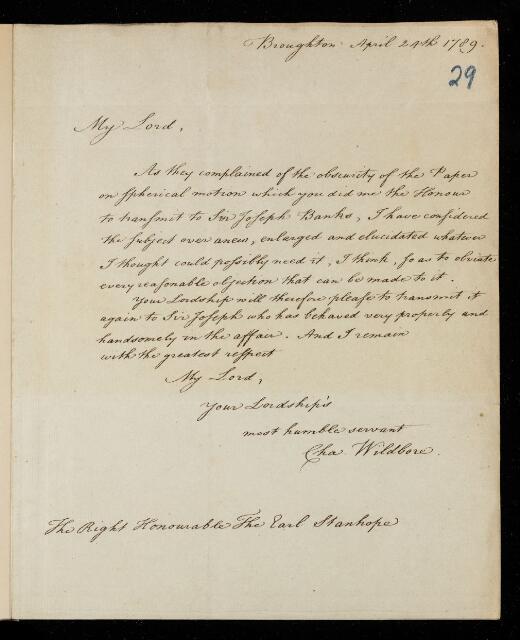 Broughton April 24th 1789.
29
My Lord,
As they complained of the obscurity of the Paper
on spherical motion which you did me the Honour
to transmit to Sir Joseph Banks, I have considered
the subject over anew, enlarged and elucidated whatever
I thought could possibly need it, I think, so as to obviate
every reasonable objection that can be made to it.
Your Lordship will therefore please to transmit it
again to Sir Joseph who has behaved very properly and
handsomely in the affair. And I remain
with the greatest respect
My Lord,
Your Lordship's
most humble servant
Cha Wildbore.
The Right Honourable The Earl Stanhope